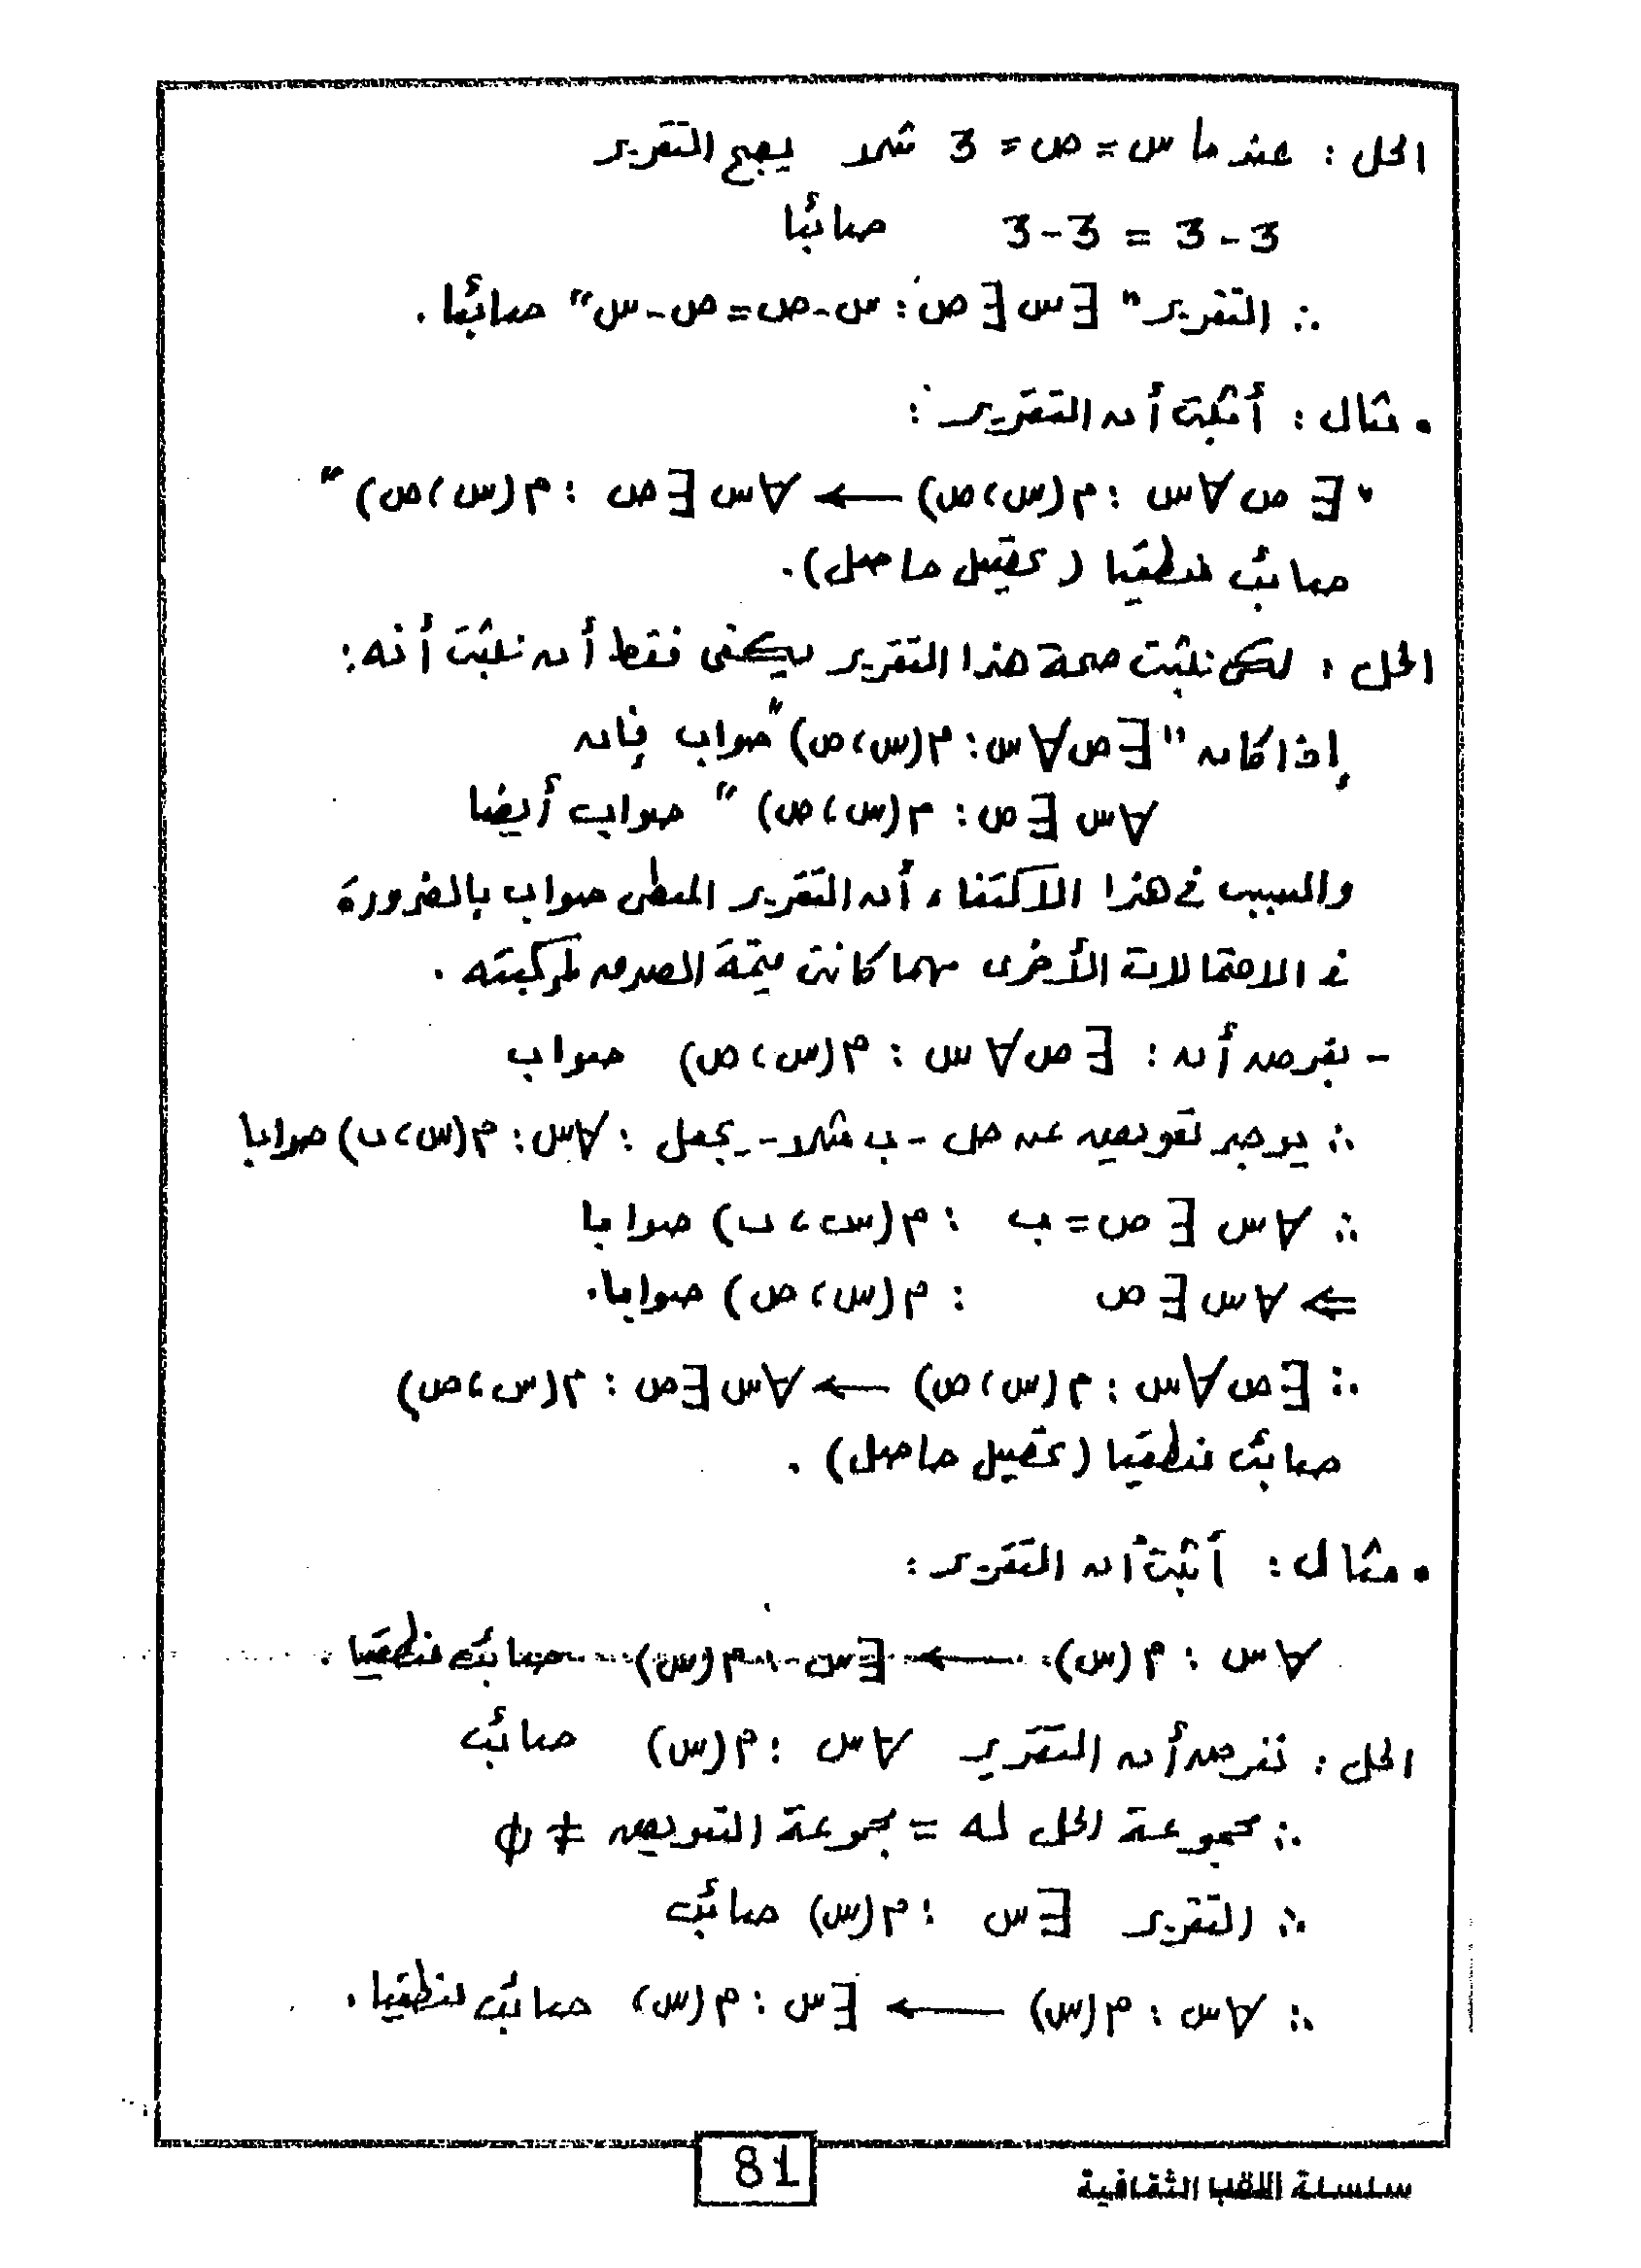 الحل : عندما س = ص = 3 مثلا يصبح التقرير
3 - 3 = 3 - 3 صائبا
∴ التقرير " ∃ س ∃ ص : س - ص = ص - س " صائبا .
• مثال : أثبت أن التقرير :
" ∃ ص ∀ س : م (س ، ص) ← ∀ س ∃ ص : م (س ، ص) "
صائب منطقيا ( تحصيل حاصل ) .
الحل : لكي نثبت صحة هذا التقرير يكفى فقط أن نثبت أنه :
إذا كان " ∃ ص ∀ س : م (س ، ص) " صواب فإن
∀ س ∃ ص : م (س ، ص) " صواب أيضا
والسبب في هذا الاكتفاء ، أن التقرير المعطى صواب بالضرورة
في الاحتمالات الأخرى مهما كانت قيمة الصدق لمركبته .
- بفرض أن : ∃ ص ∀ س : م (س ، ص) صواب
∴ يوجد تعويض عن ص - ب مثلا - يجعل : ∀ س : م (س ، ب) صوابا
∴ ∀ س ∃ ص = ب : م (س ، ب) صوابا
⇐ ∀ س ∃ ص : م (س ، ص) صوابا .
∴ ∃ ص ∀ س : م (س ، ص) ← ∀ س ∃ ص : م (س ، ص)
صائب منطقيا ( تحصيل حاصل ) .
• مثال : أثبت أن التقرير :
∀ س : م (س) ← ∃ س : م (س) صائب منطقيا .
الحل : نفرض أن التقرير ∀ س : م (س) صائب
∴ مجموعة الحل له = مجموعة التعويض ≠ φ
∴ التقرير ∃ س : م (س) صائب
∴ ∀ س : م (س) ← ∃ س : م (س) صائب منطقيا .
81
سلسلة اللقب الثقافية